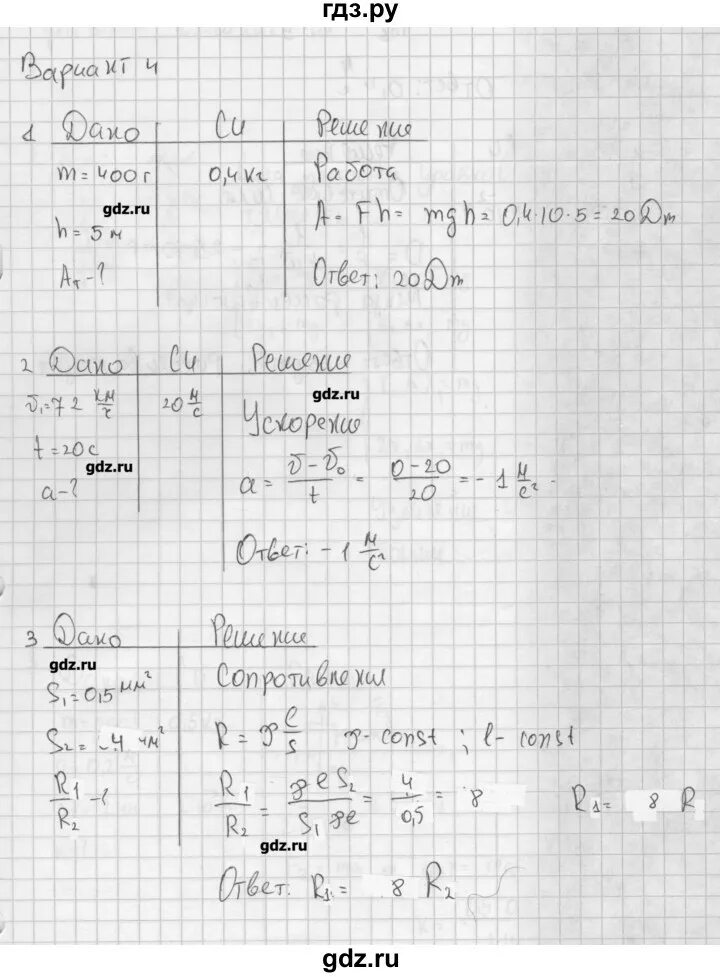 гдз.ру
Вариант 4
1 Дано СИ Решение
m = 400 г 0,4 кг Работа
gdz.ru
A = Fh = mgh = 0,4·10·5 = 20 Дж
h = 5 м
Aт - ? Ответ: 20 Дж
2 Дано СИ Решение
gdz.ru
v₁ = 72 км/ч 20 м/с Ускорение
t = 20 с
gdz.ru
a - ? a = (v - v₀)/t = (0 - 20)/20 = - 1 м/с²
Ответ: - 1 м/с²
3 Дано Решение
gdz.ru
S₁ = 0,5 мм² Сопротивления
S₂ = 4 мм² R = ρ l/s ρ - const ; l - const
R₁/R₂ - ? R₁/R₂ = ρ l S₂/S₁ ρ l = 4/0,5 = 8 R₁ = 8 R
gdz.ru
Ответ: R₁ = 8 R₂
gdz.ru